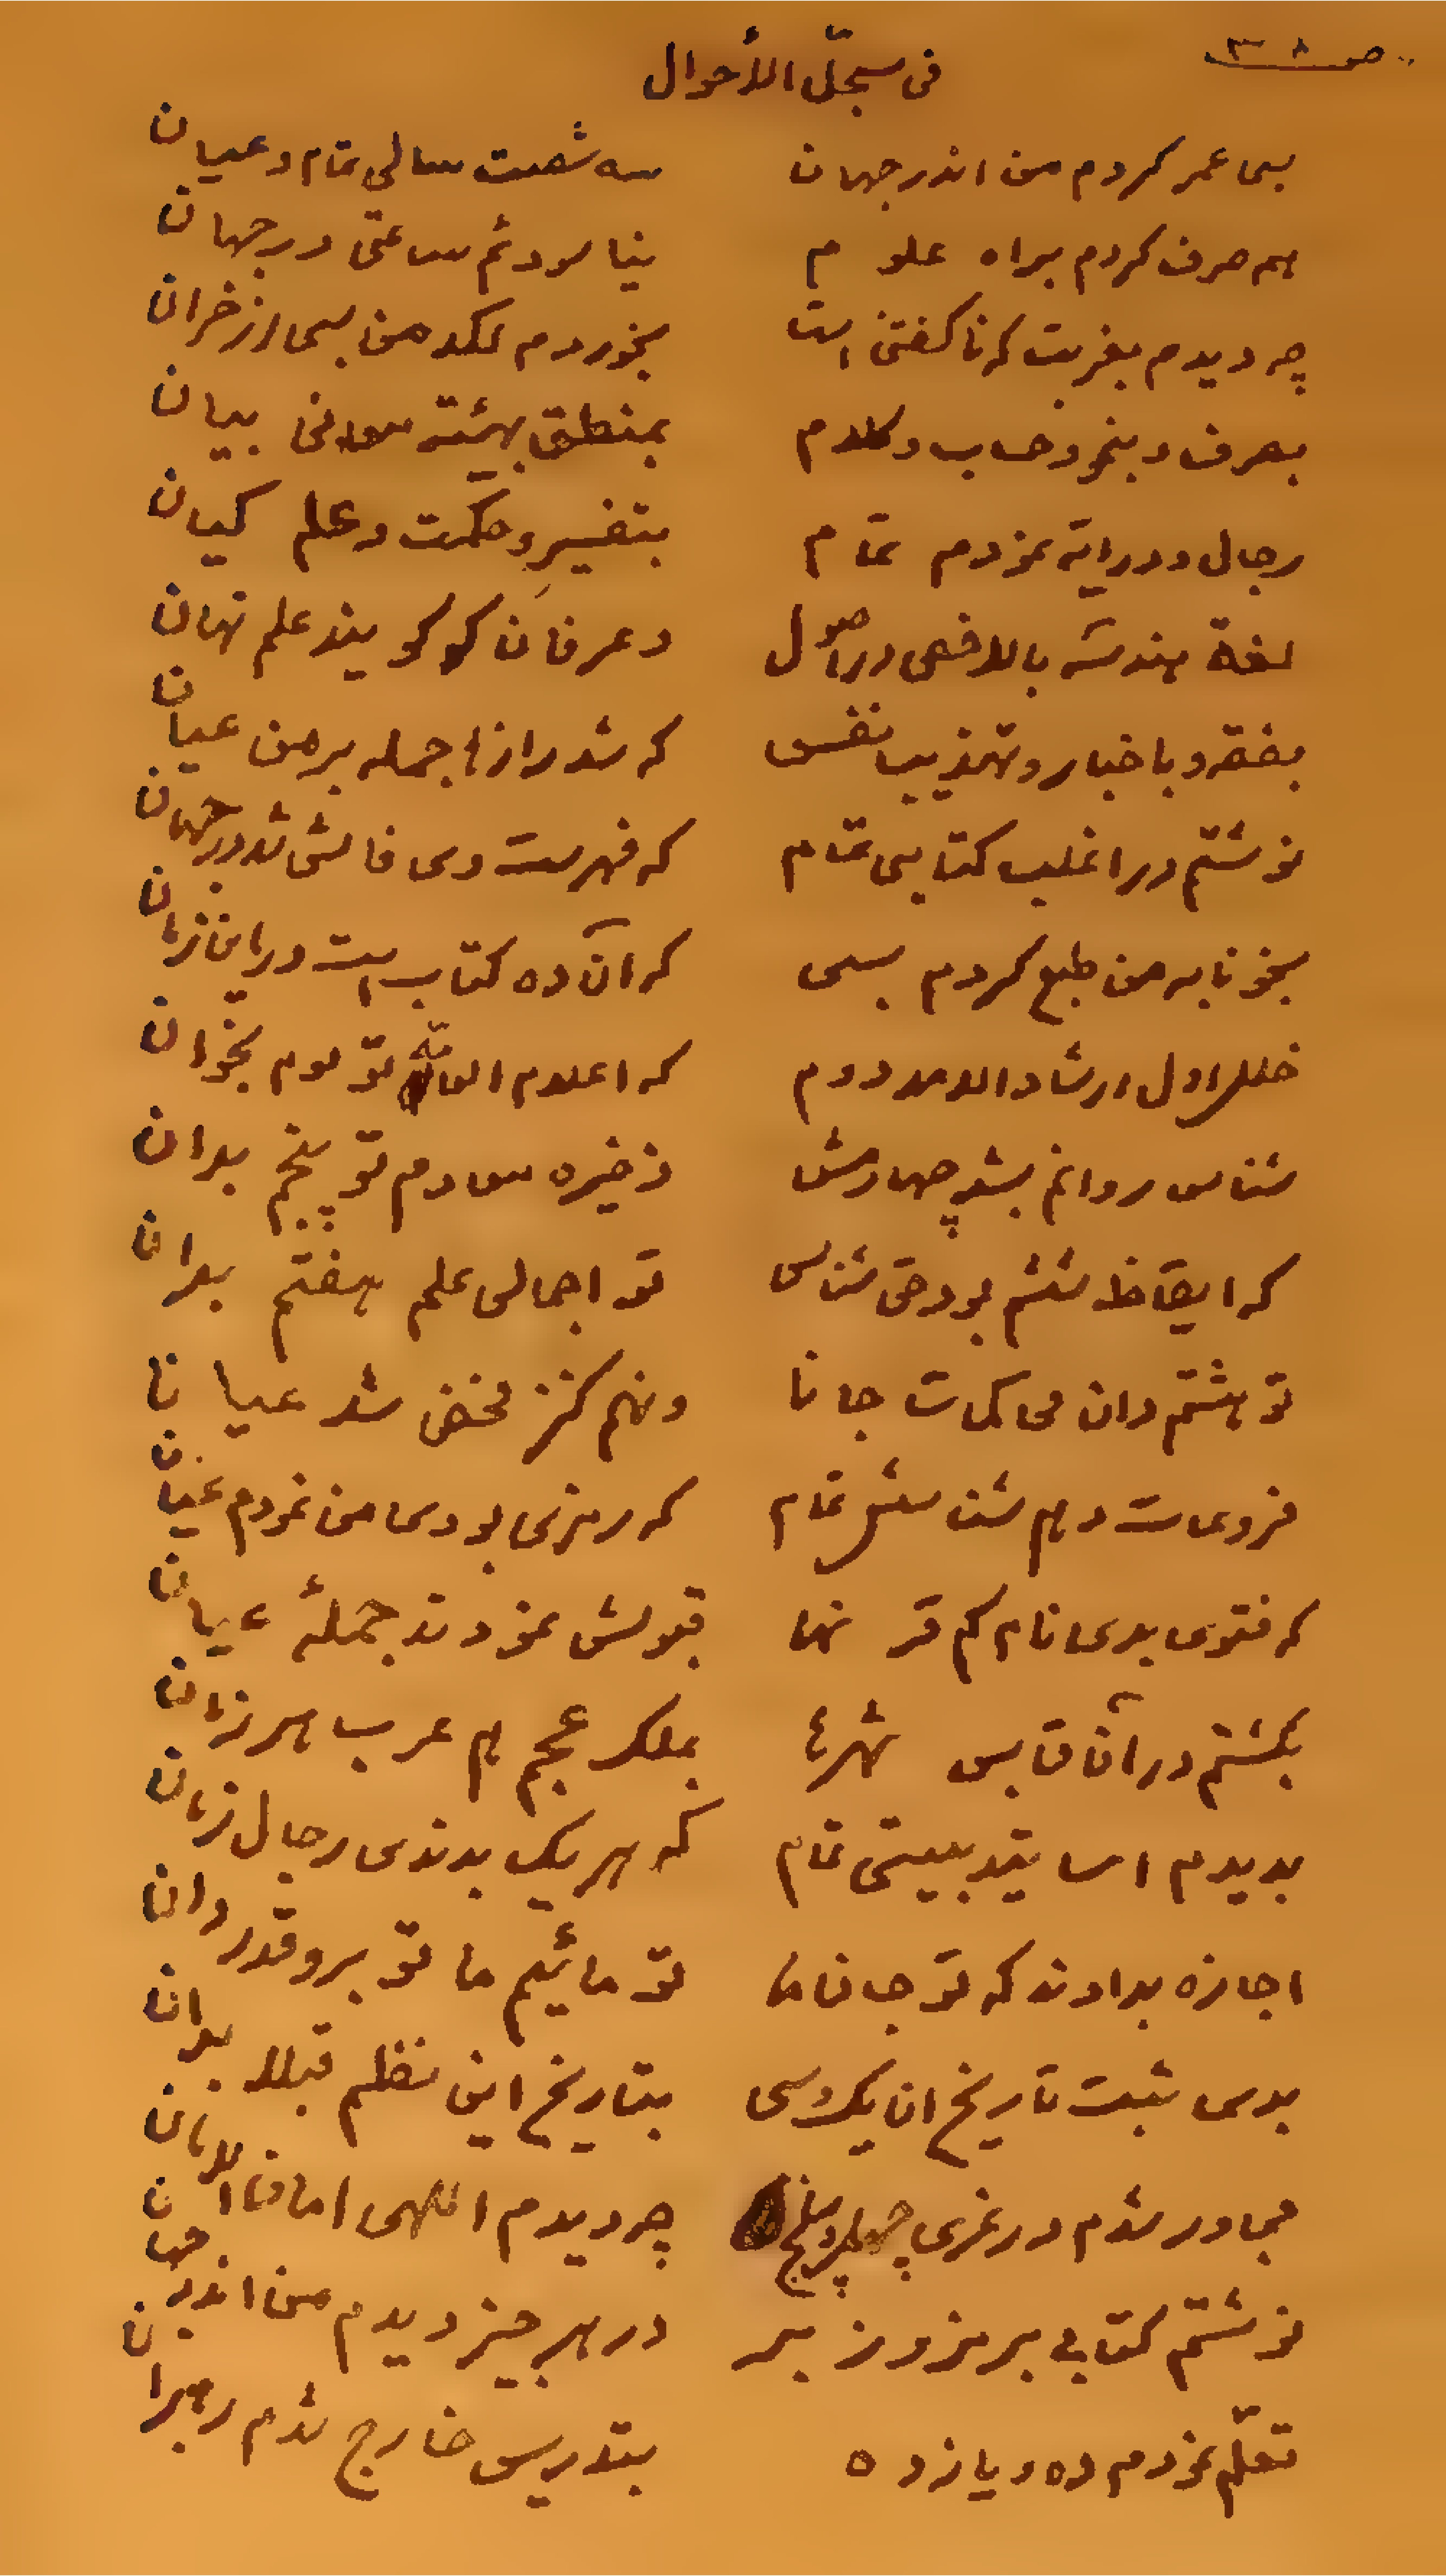 ص ٣٨
فی سجلّ الأحوال
بسی عمر کردم من اندر جهان سه شصت سالی تمام و عیان
بهم صرف کردم براه علوم نیاسودئم ساعتی در جهان
چه دیدم بغربت که ناگفتنی است بخوردم لکد من بسی از خران
بصرف و بنحو و حساب و کلام بمنطق بهیئته معانی بیان
رجال و درایه نمودم تمام بتفسیر و حکمت و علم کیان
لغة هندسه بالاخص در اصول و عرفان که گویند علم نهان
بفقه و باخبار و تهذیب نفس که شد رازها جمله بر من عیان
نوشتم در اغلب کتابی تمام که فهرست وی فاش شد در جهان
بخونابه من طبع کردم بسی که آن ده کتاب است در این زمان
اول ارشاد دوم که اعلام تو سوم بخوان
شناس روانم بشد چهارمش ذخیره معادم تو پنجم بدان
که ایقاظ ششم بود حق شناس تو اجمالی علم هفتم بدان
تو هشتم دان محاکمات جانا و نهم کنز مخفی شد عیانا
دهم تمام که رمزی بودی من نمودم عیان
که فتوی بدی نام کم قر نها قبولش نمودند جملهٔ عیان
بگشتم در آفاق بس شهرها بملک عجم هم عرب هر زمان
بدیدم اساتید بیستی تمام که هر یک بدندی رجال زمان
اجازه بدادند که تو جان ما تو مائیم ما تو برو قدر دان
بدی ثبت تاریخ ان یک وسی بتاریخ این نظم قبلا بدان
مجاور شدم در غری چهل و پنج چه دیدم الهی امانا الامان
نوشتم کتابی برمز و زبر در هر چیز دیدم من اندر جهان
تعلّم نمودم ده و یازده بتدریس خارج شدم رهبران